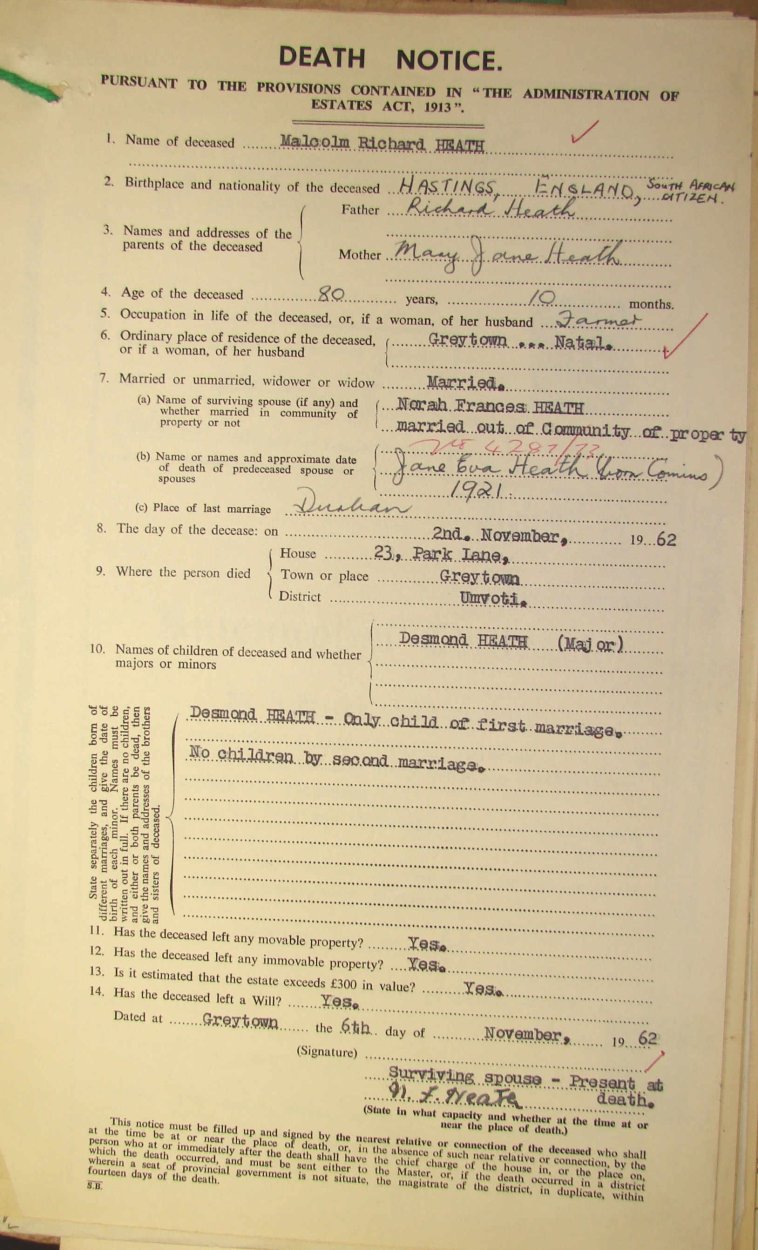 DEATH NOTICE.
PURSUANT TO THE PROVISIONS CONTAINED IN "THE ADMINISTRATION OF
ESTATES ACT, 1913".
1. Name of deceased Malcolm Richard HEATH
2. Birthplace and nationality of the deceased HASTINGS, ENGLAND, SOUTH AFRICAN CITIZEN.
3. Names and addresses of the parents of the deceased
Father Richard Heath
Mother Mary Jane Heath
4. Age of the deceased 80 years, 10 months.
5. Occupation in life of the deceased, or, if a woman, of her husband Farmer
6. Ordinary place of residence of the deceased, or if a woman, of her husband
Greytown ... Natal.
7. Married or unmarried, widower or widow Married.
(a) Name of surviving spouse (if any) and
whether married in community of
property or not
Norah Frances HEATH
married out of Community of property
4287/73
(b) Name or names and approximate date
of death of predeceased spouse or
spouses
Jane Eva Heath (born Comins)
1921.
(c) Place of last marriage Durban
8. The day of the decease: on 2nd. November, 19 62
9. Where the person died
House 23, Park Lane,
Town or place Greytown
District Umvoti.
10. Names of children of deceased and whether
majors or minors
Desmond HEATH (Major)
State separately the children born of
different marriages, and give the date of
birth of each minor. Names must be
written out in full. If there are no children,
and either or both parents be dead, then
give the names and addresses of the brothers
and sisters of deceased.
Desmond HEATH - Only child of first marriage.
No children by second marriage.
11. Has the deceased left any movable property? Yes.
12. Has the deceased left any immovable property? Yes.
13. Is it estimated that the estate exceeds £300 in value? Yes.
14. Has the deceased left a Will? Yes.
Dated at Greytown the 6th day of November, 19 62
(Signature)
Surviving spouse - Present at
death.
N. F. Heath
(State in what capacity and whether at the time at or
near the place of death.)
This notice must be filled up and signed by the nearest relative or connection of the deceased who shall
at the time be at or near the place of death, or, in the absence of such near relative or connection, by the
person who at or immediately after the death shall have the chief charge of the house in, or the place on,
which the death occurred, and must be sent either to the Master, or, if the death occurred in a district
wherein a seat of provincial government is not situate, the magistrate of the district, in duplicate, within
fourteen days of the death.
S.B.